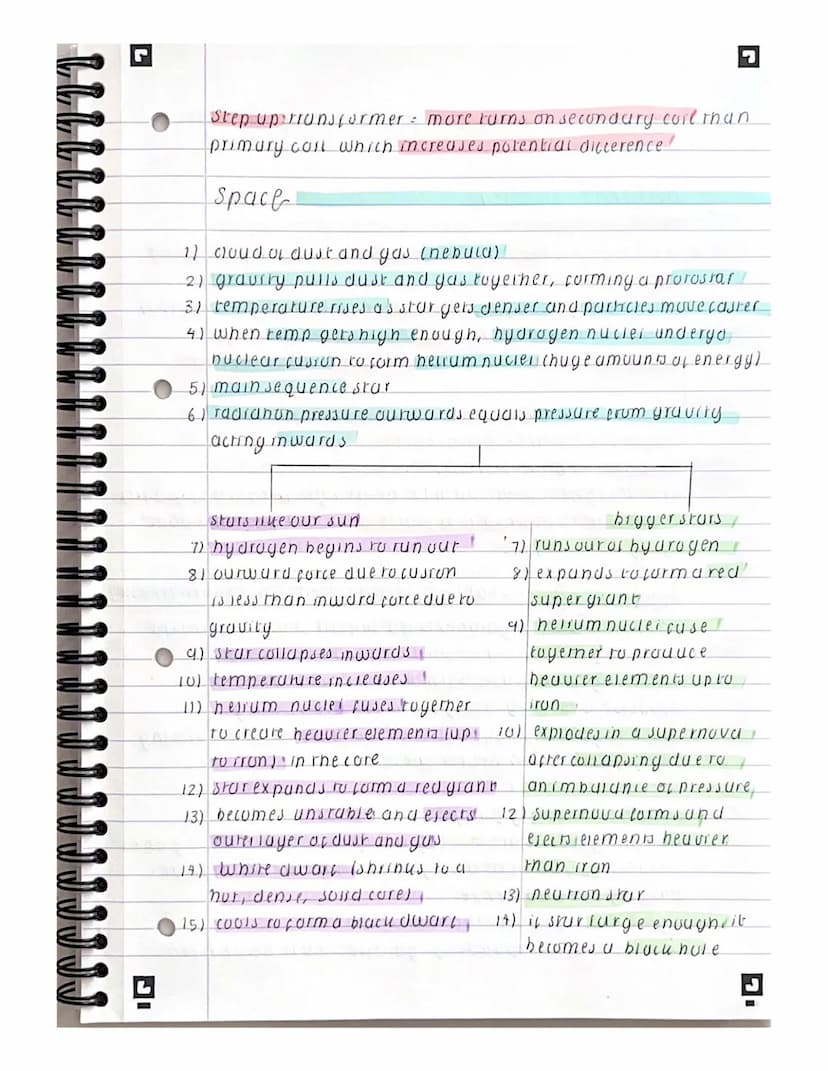 Step up transformer = more turns on secondary coil than
primary coil which increases potential difference
Space
1) cloud of dust and gas (nebula)
2) gravity pulls dust and gas together, forming a protostar
3) temperature rises as star gets denser and particles move faster
4) when temp gets high enough, hydrogen nuclei undergo
nuclear fusion to form helium nuclei (huge amounts of energy)
5) main sequence star
6) radiation pressure outwards equals pressure from gravity
acting inwards
stars like our sun
7) hydrogen begins to run out
8) outward force due to fusion
is less than inward force due to
gravity
9) star collapses inwards
10) temperature increases
11) helium nuclei fuses together
to create heavier elements (up
to iron) in the core
12) star expands to form a red giant
13) becomes unstable and ejects
outer layer of dust and gas
14) white dwarf (shrinks to a
hot, dense, solid core)
15) cools to form a black dwarf
bigger stars
7) runs out of hydrogen
8) expands to form a red
super giant
9) helium nuclei fuse
together to produce
heavier elements up to
iron
10) explodes in a supernova
after collapsing due to
an imbalance of pressure
12) supernova forms and
ejects elements heavier
than iron
13) neutron star
14) if star large enough, it
becomes a black hole